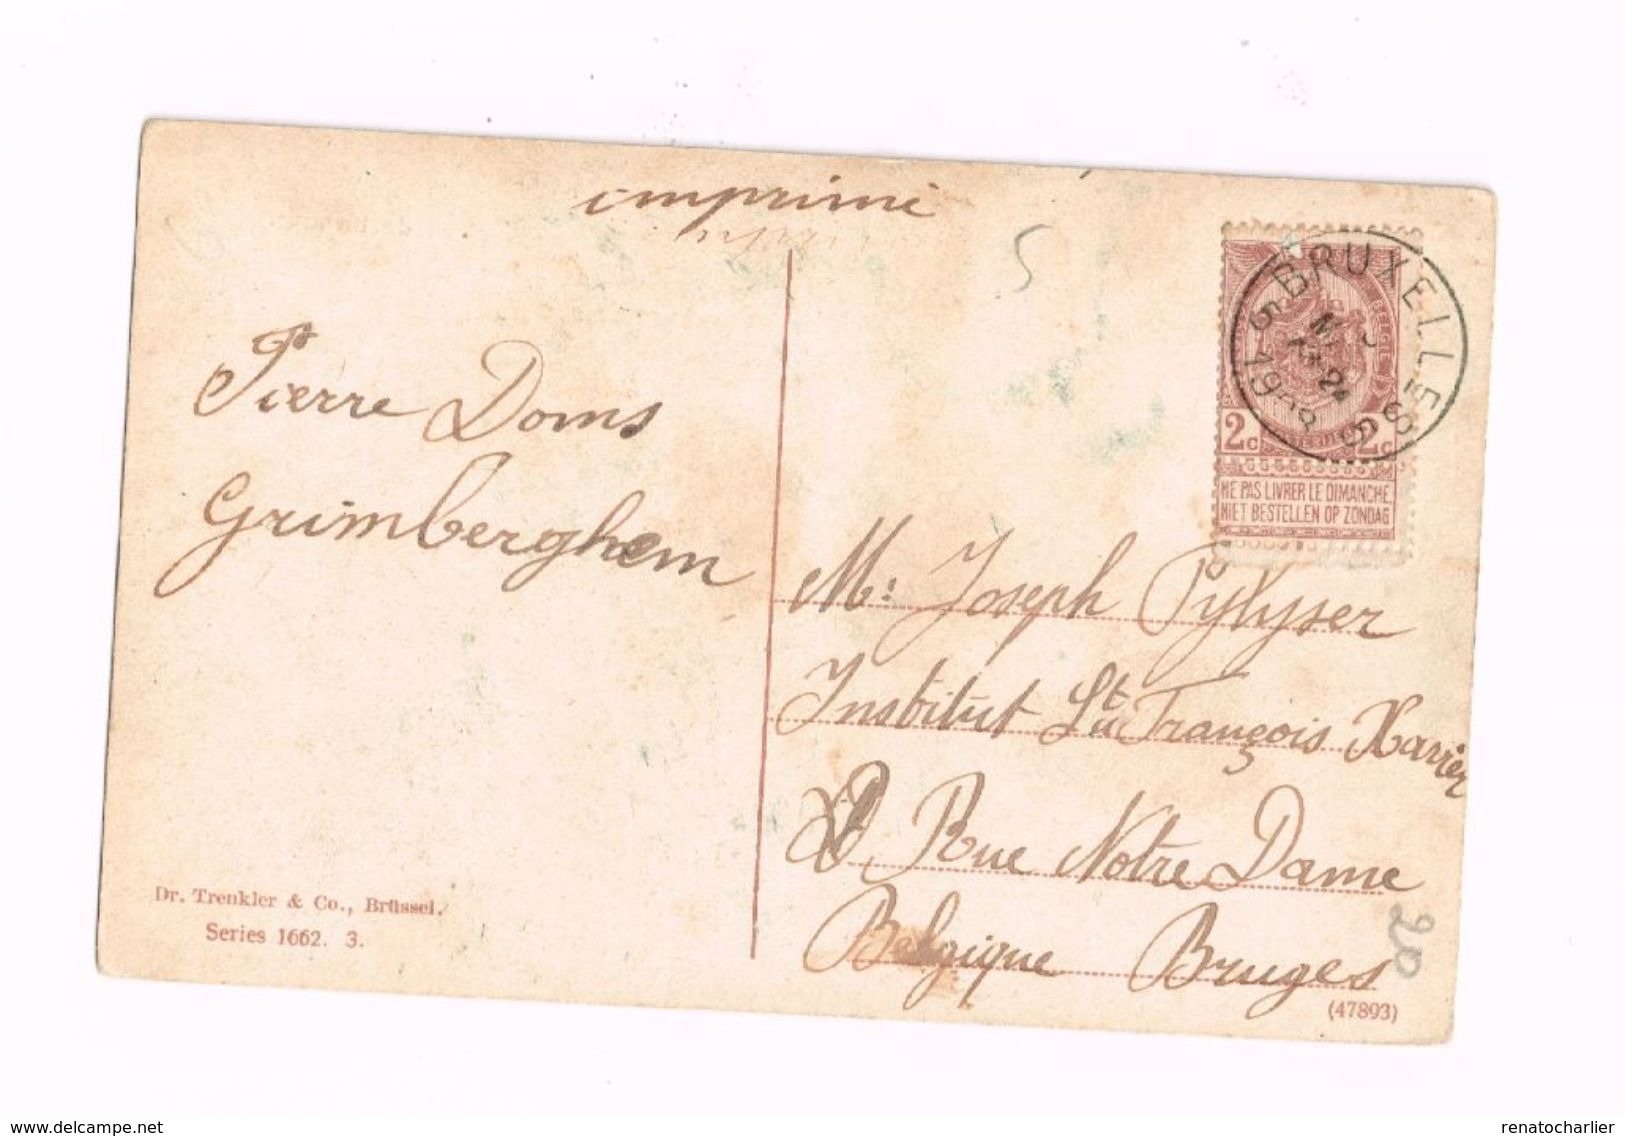 imprimé
5
BRUXELLES
BELGIQUE
2c 2c
NE PAS LIVRER LE DIMANCHE
NIET BESTELLEN OP ZONDAG
Pierre Doms
Grimberghem
Mr: Joseph Pylyser
Institut St François Xavier
Rue Notre Dame
Belgique Bruges
20
Dr. Trenkler & Co., Brüssel.
Series 1662. 3.
(47893)
www.delcampe.net
renatocharlier